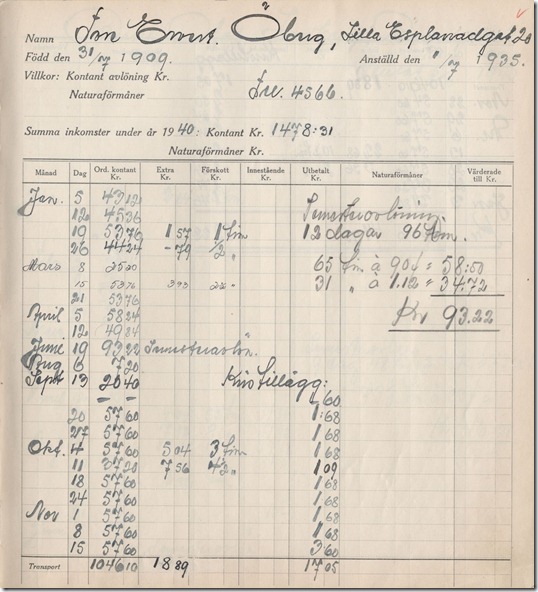 Namn Ewert Öberg, Lilla Esplanadgat. 20
Född den 31/ 1909. Anställd den / 1935.
Villkor: Kontant avlöning Kr.
Naturaförmåner 4566.
Summa inkomster under år 1940: Kontant Kr. 1478:31
Naturaförmåner Kr.
Månad Dag Ord. kontant Kr. Extra Kr. Förskott Kr. Innestående Kr. Utbetalt Kr. Naturaförmåner Värderade till Kr.
Jan. 5 43 12
12 45 36 Semesteravlöning.
19 53 76 1 57 1 tim 12 dagar 96 tim.
26 44 24 - 79 1/2 "
Mars 8 25 20 65 tim à 90 = 58:50
15 53 76 3 93 31 " à 1.12 = 34.72
21 53 76
April 5 58 24 Kr 93.22
12 49 84
Juni 19 93 22 Semesteravlön.
Aug 6 7 20
Sept 13 20 40 Kristillägg:
- - 60
20 57 60 1:68
27 57 60 1 68
Okt. 4 57 60 5 04 3 tim 1 68
11 7 56 4 1/2 " 1 09
18 57 60 1 68
24 57 60 1 68
Nov 1 57 60 1 68
8 57 60 1 68
15 57 60 3 60
Transport 1046 10 18 89 17 05